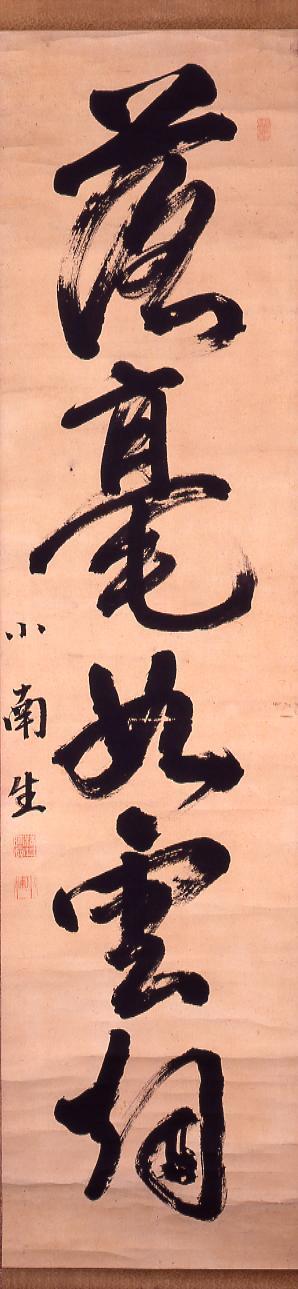 落毫如雲烟
小南生